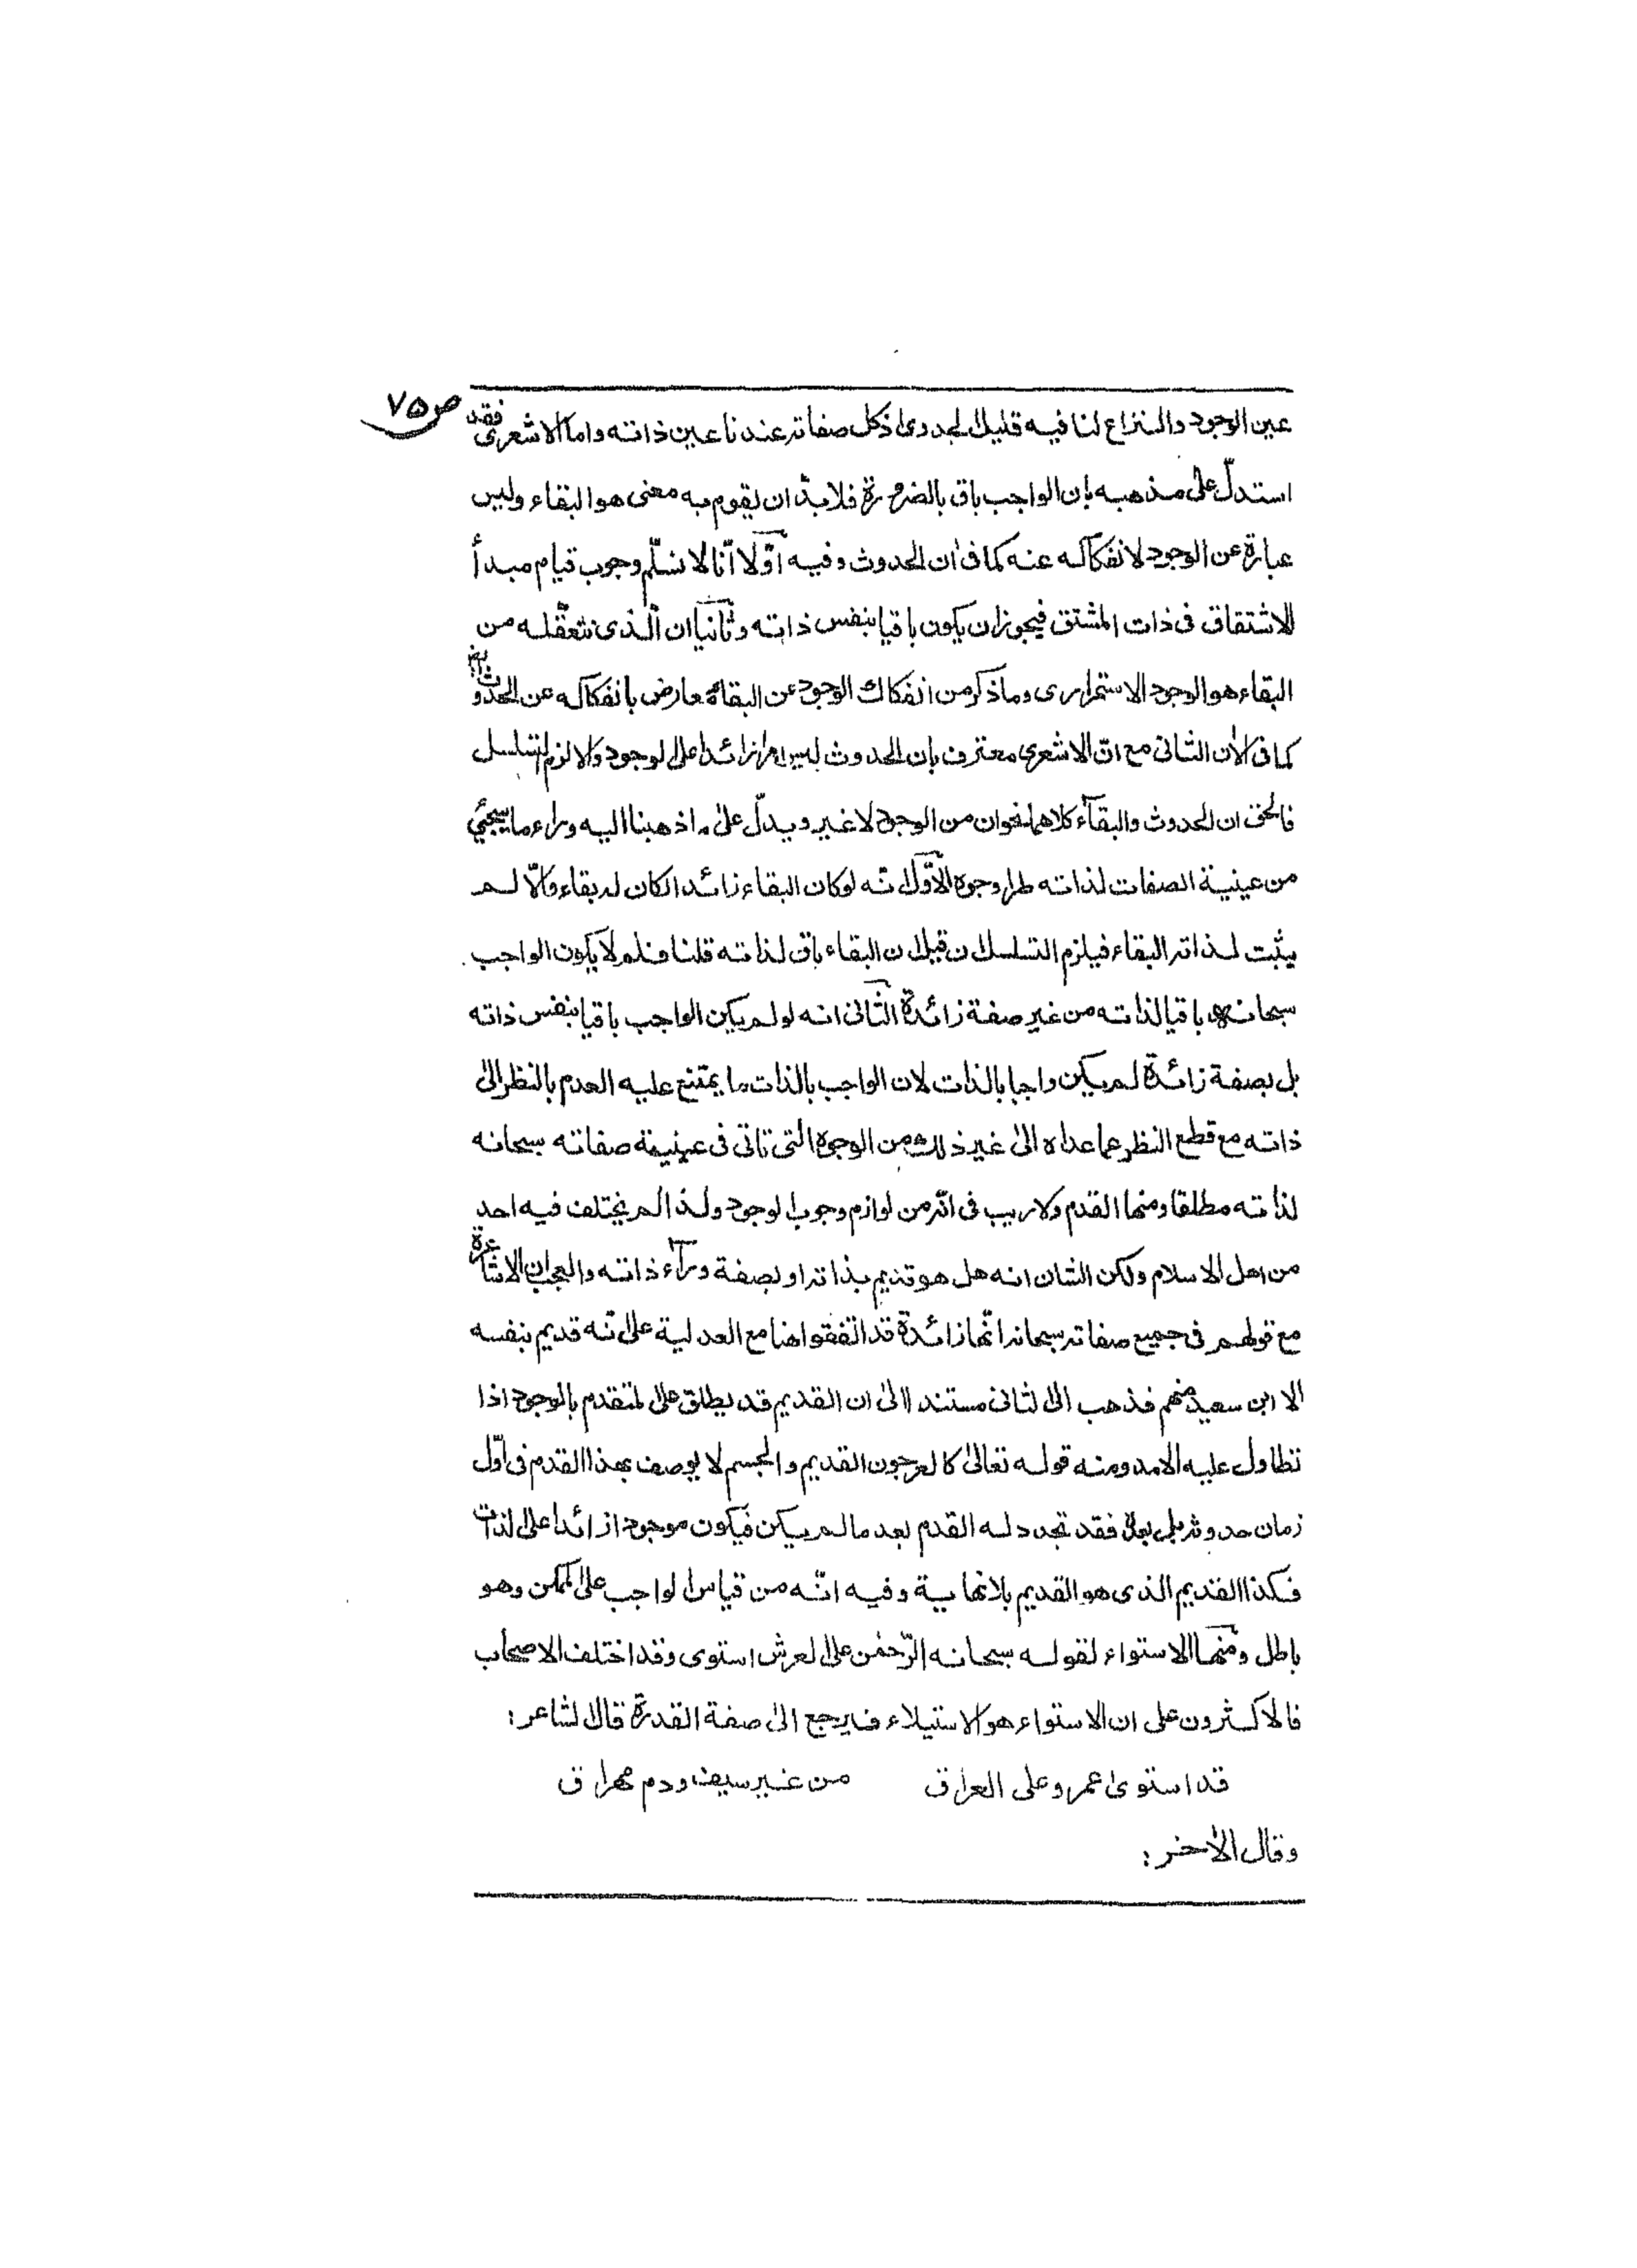 ص ٧٥
عين الوجود والنزاع لنا فيه قليل الجدوى اذ كل صفاته عندنا عين ذاته واما الاشعرى فقد
استدلّ على مذهبه بان الواجب باق بالضرورة فلا بدّ ان يقوم به معنى هو البقاء وليس
عبارة عن الوجود لانفكاكه عنه كما فى ان الحدوث وفيه اوّلا انّا لا نسلّم وجوب قيام مبدأ
الاشتقاق فى ذات المشتق فيجوز ان يكون باقيا بنفس ذاته وثانيا ان الّذى نتعقّله من
البقاء هو الوجود الاستمرارى وما ذكر من انفكاك الوجود عن البقاء معارض بانفكاكه عن الحدوث ايض
كما فى الان الثانى مع انّ الاشعرى معترف بان الحدوث ليس امرا زائدا على الوجود والا لزم التسلسل
فالحق ان الحدوث والبقاء كلاهما نحوان من الوجود لا غير ويدلّ على ما ذهبنا اليه وراء ما سيجئ
من عينية الصفات لذاته طرا وجوه الاوّل انّه لو كان البقاء زائدا لكان له بقاء والّا لم
يثبت لذاته البقاء فيلزم التسلسل ان قيل ان البقاء باق لذاته قلنا فلم لا يكون الواجب
سبحانه باقيا لذاته من غير صفة زائدة الثانى انه لو لم يكن الواجب باقيا بنفس ذاته
بل بصفة زائدة لم يكن واجبا بالذات لان الواجب بالذات ما يمتنع عليه العدم بالنظر الى
ذاته مع قطع النظر عما عداه الى غير ذلك من الوجوه التى تاتى فى عينية صفاته سبحانه
لذاته مطلقا ومنها القدم ولا ريب فى انّه من لوازم وجوب الوجود ولذا لم يختلف فيه احد
من اهل الاسلام ولكن الشان انه هل هو قديم بذاته او بصفة وراء ذاته والعجب ان الاشاعرة
مع قولهم فى جميع صفاته سبحانه انّها زائدة قد اتفقوا هنا مع العدلية على انّه قديم بنفسه
الا ابن سعيد منهم فذهب الى الثانى مستندا الى ان القديم قد يطلق على المتقدم بالوجود اذا
تطاول عليه الامد ومنه قوله تعالى كالعرجون القديم والجسم لا يوصف بهذا القدم فى اوّل
زمان حدوثه بل بعده فقد تجدد له القدم بعد ما لم يكن فيكون موجودا زائدا على الذات
فكذا القديم الذى هو القديم بلا نهاية وفيه انّه من قياس الواجب على الممكن وهو
باطل ومنها الاستواء لقوله سبحانه الرّحمٰن على العرش استوى وقد اختلف الاصحاب
فالاكثرون على ان الاستواء هو الاستيلاء فيرجع الى صفة القدرة قال الشاعر:
قد استوى عمرو على العراق من غير سيف ودم مهراق
وقال الأخر: